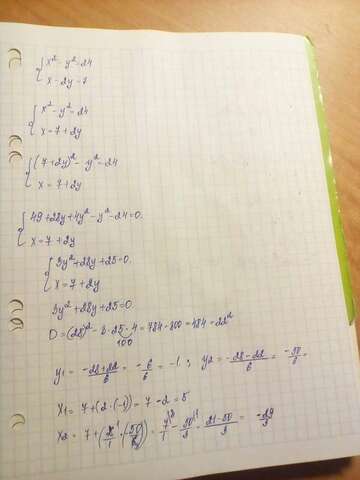 { x² - y² = 24
x - 2y = 7
{ x² - y² = 24
x = 7 + 2y
{ (7 + 2y)² - y² = 24
x = 7 + 2y
{ 49 + 28y + 4y² - y² - 24 = 0.
x = 7 + 2y
{ 3y² + 28y + 25 = 0.
x = 7 + 2y
3y² + 28y + 25 = 0.
D = (28)² - 3 · 25 · 4 = 784 - 300 = 484 = 22²
100
y1 = -28+22/6 = -6/6 = -1; y2 = -28-22/6 = -50/6 =
x1 = 7 + (2 · (-1)) = 7 - 2 = 5
x2 = 7 + (2/1 · (50/6)) = 7/1 - 50/3 = 21-50/3 = -29/3